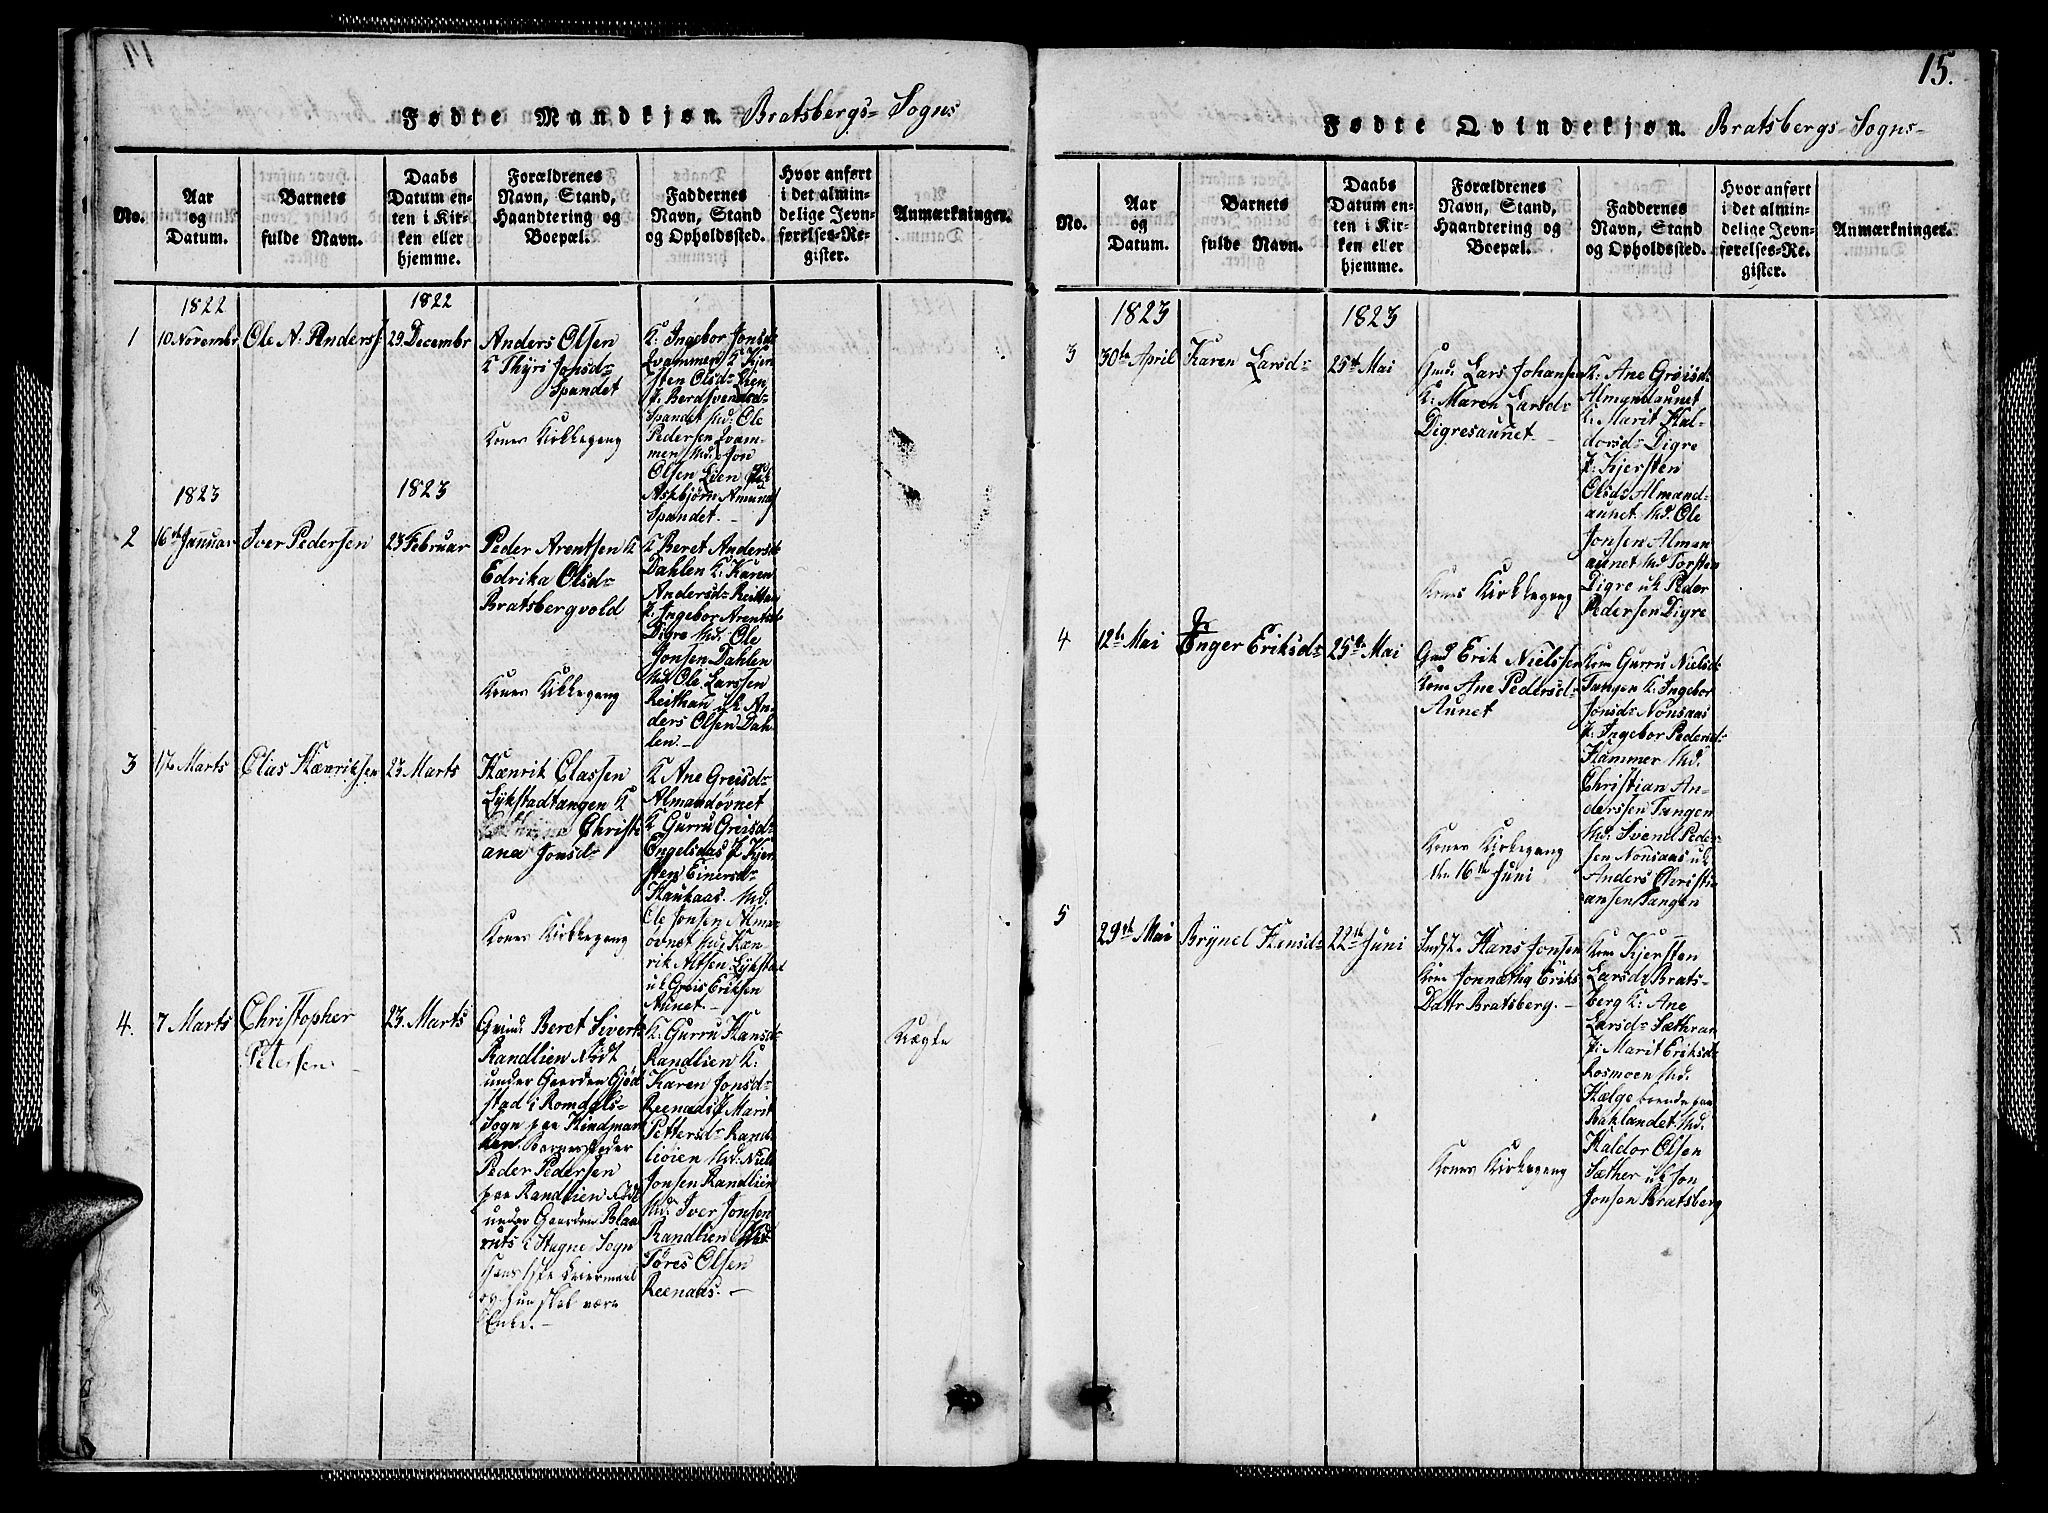 Fødte Mandkjøn. Bratsbergs- Sogns
No.
Aar
og
Datum.
Barnets
fulde Navn.
Daabs
Datum en-
ten i Kir-
ken eller
hjemme.
Forældrenes
Navn, Stand,
Haandtering og
Boepæl.
Faddernes
Navn, Stand
og Opholdssted.
Hvor anført
i det almin-
delige Jevn-
førelses-Re-
gister.
Anmærkninger.
1822
1822
1
10 Novembr
Ole A. Anders
29 Decembr
Anders Olsen
K Thyri Jonsd-
Spandet
Kones Kirkegang
K. Ingebor Jonsd-
Qvammen K Kjer-
sten Olsd-
Spandet Md. Ole
Pedersen Qvam-
men Md. Jon
Olsen Lien
Askbjørn Amunds
Spandet.
1823
1823
2
16de Januar
Iver Pedersen
23 Februar
Peder Arentsen K
Edrika Olsd-
Bratsbergvold
Kones Kirkegang
K Beret Andersd-
Dahlen K. Karen
Andersd- Reitten
P. Ingebor Arentsd-
Digre Md. Ole
Jonsen Dahlen
Md Ole Larssen
Reithan uk An-
ders Olsen Dah-
len.-
3
1ste Marts
Clas Hænriksen
23 Marts
Hænrik Classen
Lykstadtangen K
Christi-
ana Jonsd-
Kones Kirkegang
K Ane Greisd-
Almandøvnet
K Gurru Greisd-
Engelsaas P. Kjer-
sten Einersd-
Haukaas. Md.
Ole Jonsen Alma-
øvnet Md. Hæn-
rik Altsen Lykstad
uk Greis Eriksen
Aunet.-
4.
7 Marts
Christopher
Petersen
23. Marts
Qvind Beret Siverts
Randlien Nidt
under Gaarden Gjød
stad i Romdals-
Sogn paa Hindmar
ken. Barnefader
Peder Pedersen
paa Randlien Nidt
under Gaarden Blaa
ruts i Stagne Sogn
hans 1ste Leiermaal
og hun skal være
Enke.-
K. Gurru Hansd-
Randlien K.
Karen Jonsd-
Reenaas P Marit
Pettersd- Rand-
liøien Md. Niels
Jonsen Randlien
Md. Iver Jonsen
Randlien
Tøres Olsen
Reenaas.-
Uægte
15.
Fødte Qvindekjøn. Bratsbergs- Sogns-
No.
Aar
og
Datum.
Barnets
fulde Navn.
Daabs
Datum en-
ten i Kir-
ken eller
hjemme.
Forældrenes
Navn, Stand,
Haandtering og
Boepæl.
Faddernes
Navn, Stand
og Opholdssted.
Hvor anført
i det almin-
delige Jevn-
førelses-Re-
gister.
Anmærkninger.
1823
1823
3
30te April
Karen Larsd-
25de Mai
Gmd. Lars Johansen
K. Maren Larsd-
Digresaunet
Kones Kirkegang
K. Ane Greisd-
Almyndaunet
K. Marit Hal-
dorsd- Digre
P. Kjersten
Olsd- Almand-
aunet. Md. Ole
Jonsen Alman
aunet Md Torsten
Digre uk Peder
Pedersen Digre
4
12te Mai
Inger Eriksd-
25de Mai
Gmd Erik Nielssen
Kone Ane Pedersd-
Aunet
Kones Kirkegang
den 16de Juni
Kone Gurru Nielsd-
Tangen K. Ingebor
Jonsd- Nonsaas
P. Ingebor Pedersd-
Hammer Md.
Christian An-
derssen Tangen
Md. Svend Peder-
sen Nonsaas uk
Anders Christi-
ansen Tangen
5
29de Mai
Brynel Hansd-
22de Juni
Indst. Hans Jonsen
Kone Jonnætha Eriks
Dattr Bratsberg.-
Kones Kirkegang
Kone Kjersten
Larsd- Brats-
berg K. Ane
Larsd- Sæthran
P. Marit Eriksd-
Rosmoen Md.
Hælge boende paa
Baklandet. Md.
Haldor Olsen
Sæther uk Jon
Jonsen Bratsberg